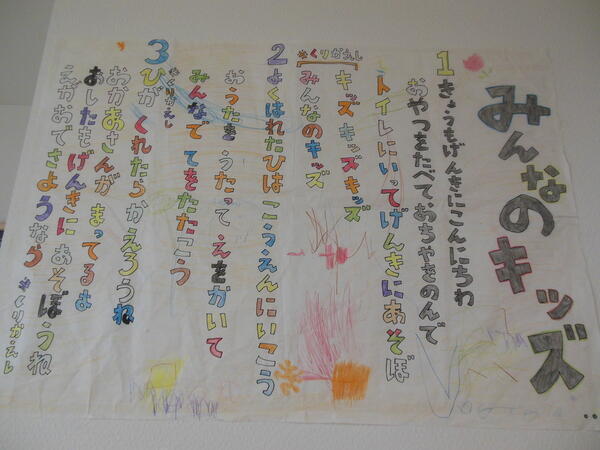 みんなのキッズ
1 きょうもげんきにこんにちわ
おやつをたべておちゃをのんで
トイレにいってげんきにあそぼ
*くりかえし
キッズキッズキッズ
みんなのキッズ
2 よくはれたひは こうえんにいこう
おうたをうたって えをかいて
みんなで てをたたこう
*くりかえし
3 ひが くれたらかえろうね
おかあさんが まってるよ
あしたもげんきに あそぼうね
えがおでさようなら *くりかえし